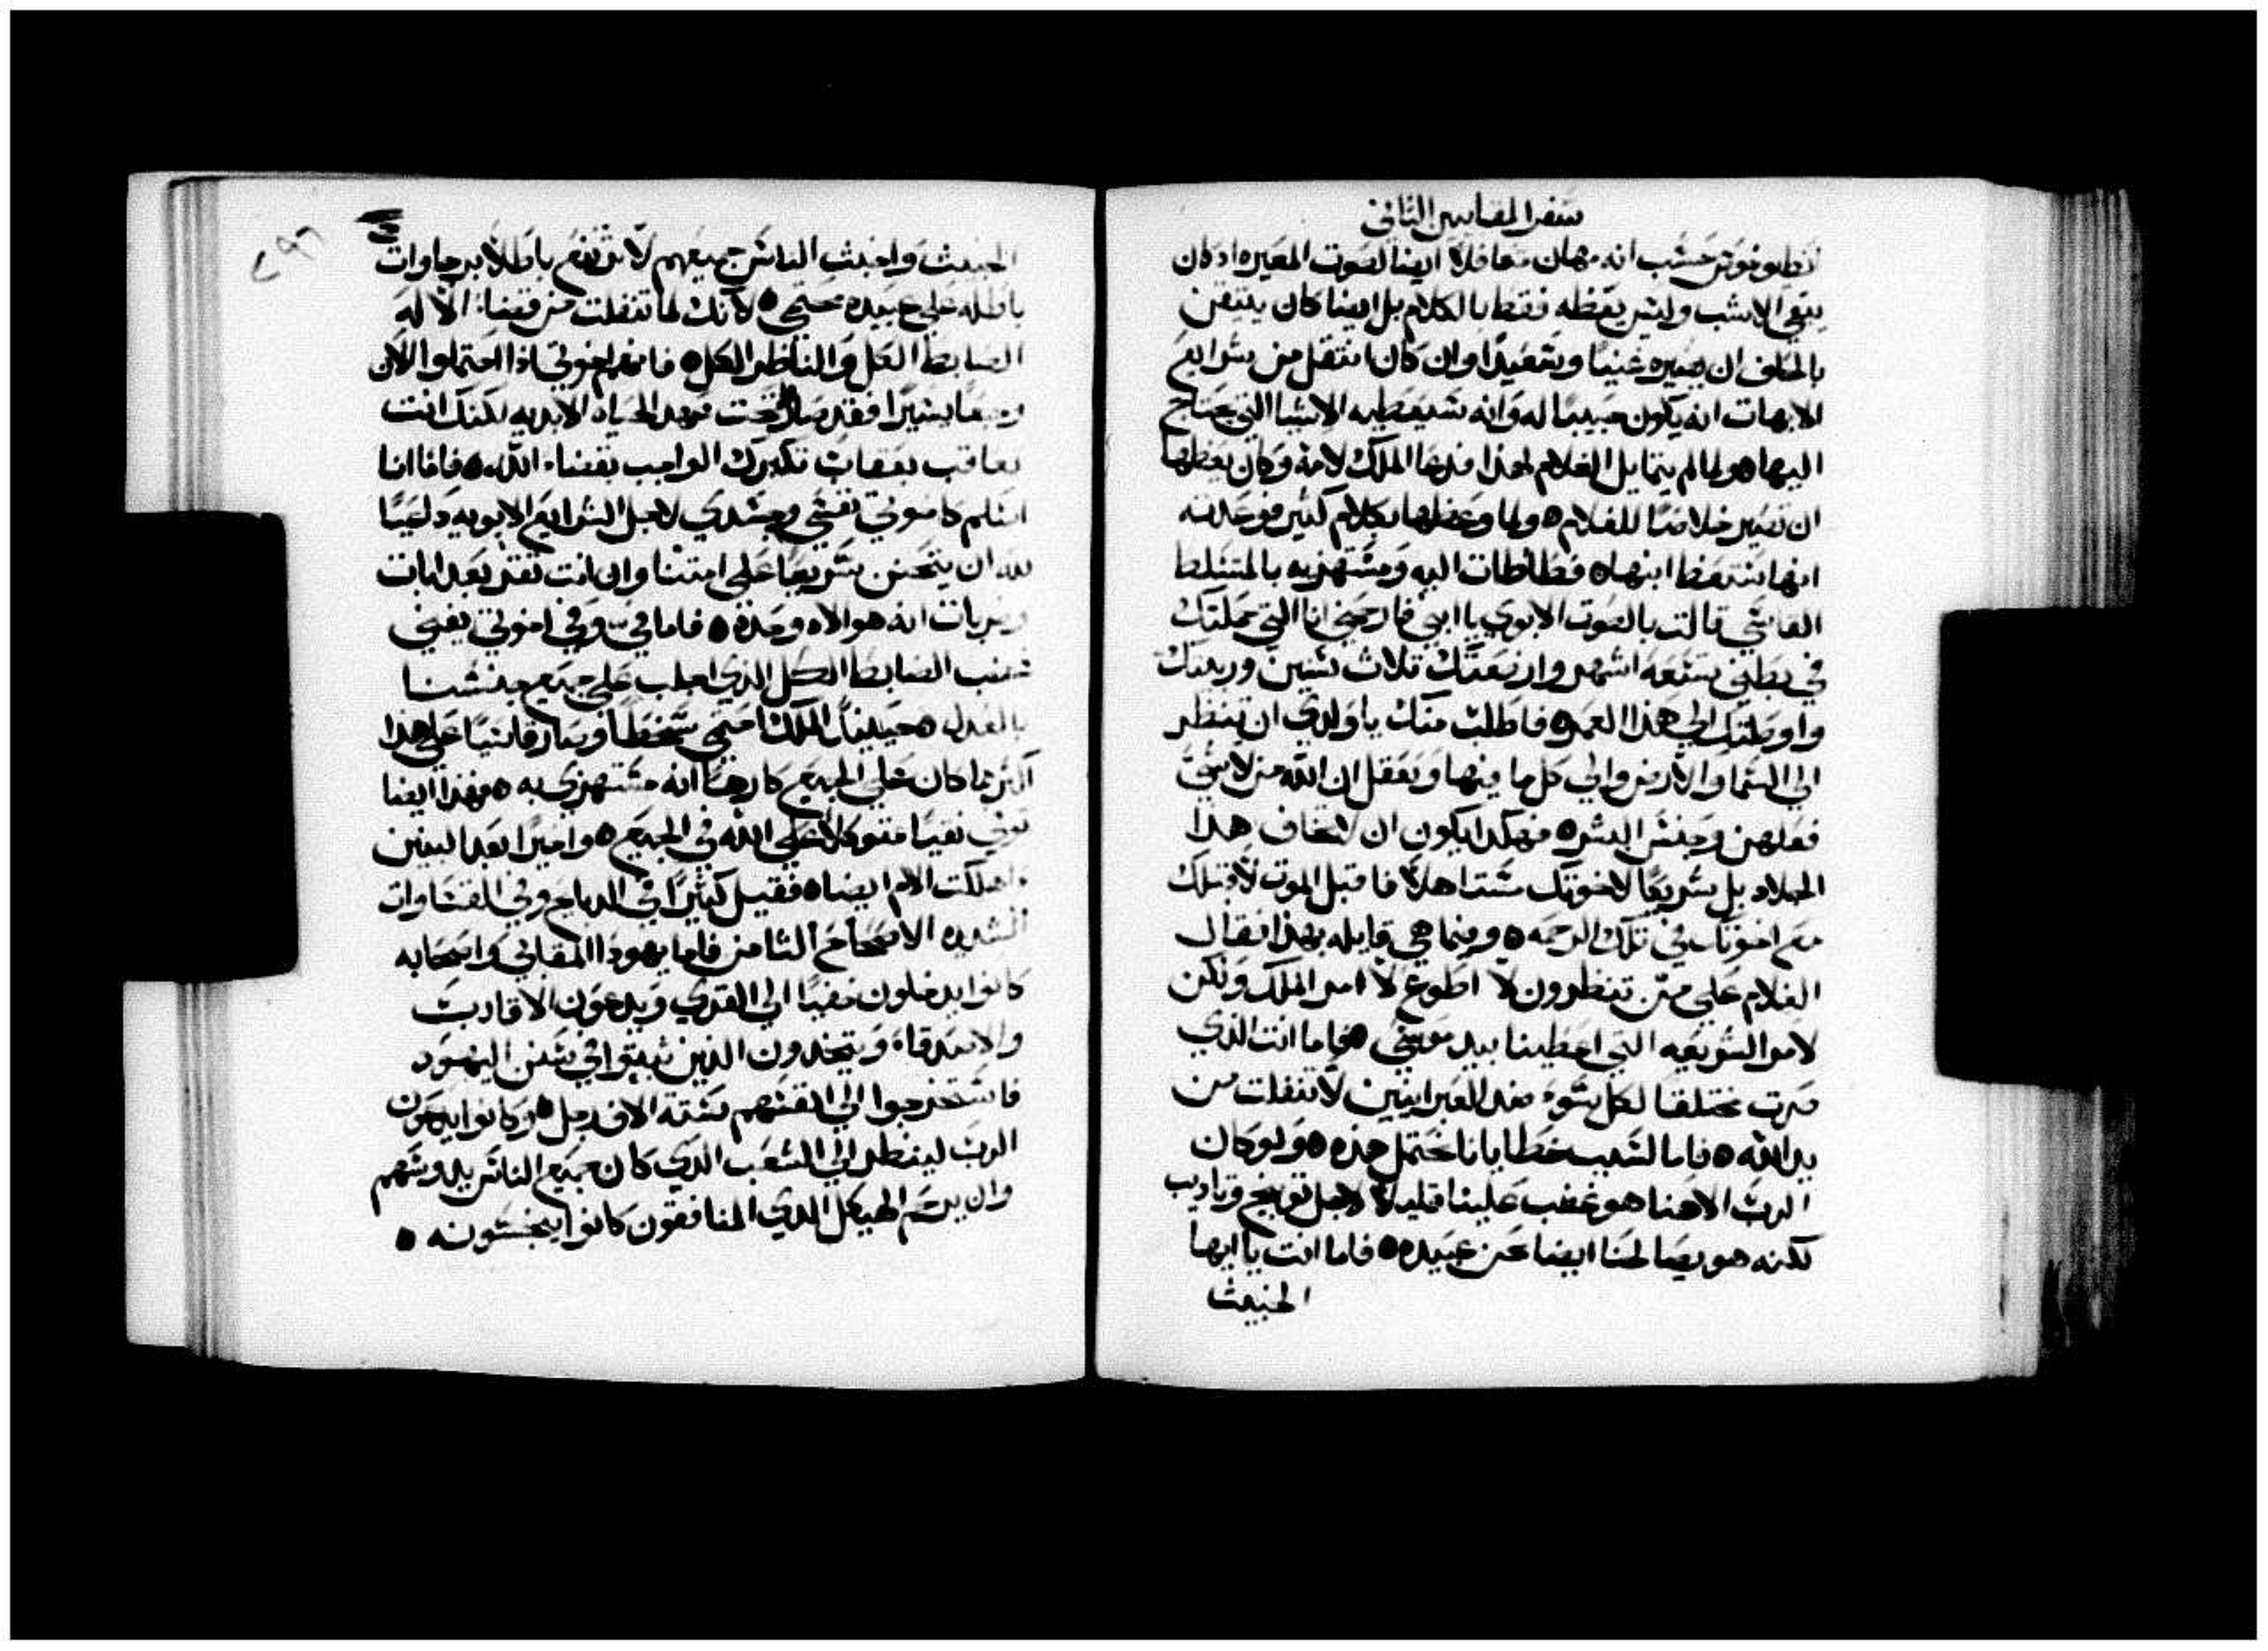 سفر المقابيين الثاني
انطيوخوس حسب انه مهان متغافلا ايضا لصوت المعيره اذ كان
يبقي الاشب وليس يعظه فقط بالكلام بل ايضا كان يتيقن
بالحلف ان يصيره غنيا وسعيدا وان كان انتقل من شرايع
الابهات انه يكون حبيبا له وانه سيعطيه الاشيا التي يحتاج
اليها ه ولما لم يتمايل الغلام لهذا فدعا الملك لامه وكان يعظها
ان تصير خلاصا للغلام ه ولما وعظها بكلام كثير فوعدته
انها ستعظ ابنها ه فطاطات اليه ومستهزيه بالمتسلط
القاسي قالت بالصوت الابوي يا ابني فارحمني انا التي حملتك
في بطني تسعة اشهر وارضعتك تلاث سنين وربيتك
واوصلتك الي هذا العمر ه فاطلب منك يا ولدي ان تنظر
الي السما والارض والي كل ما فيها وتعقل ان الله من لا شي
فعلهن وجنس البشر ه فهكذا يكون ان لا تخاف هذا
الجلاد بل شريكا لاخوتك مستاهلا فاقبل الموت لاقبلك
مع اخوتك في تلك الرحمه ه وفيما هي قايله بهذا فقال
الغلام علي من تنظرون لا اطوع لا امر الملك ولكن
لامر الشريعه التي اعطينا بيد موسي ه فاما انت الذي
صرت مختلقا لكل سوء ضد العبرانيين لا تنفلت من
يد الله ه فاما لسبب خطايانا نحتمل هذه ه ولو كان
الرب الاهنا هو غضب علينا قليلا لاجل توبيخ وتاديب
لكنه هو يصالحنا ايضا عن عبيده ه فاما انت يا ايها
الخبيث
الخبيث واخبث الناس جميعهم لا ترتفع باطلا برجاوات
باطله علي عبيده محتمي ه لانك لما تنفلت من قضاء الاله
الضابط الكل والناظر الكل ه فاما اخوتي اذا احتملوا الان
وجعا يسيرا فقد صاروا تحت عهد الحياة الابديه لكنك انت
تعاقب بعقاب تكبرك الواجب بقضاء الله ه فاما انا
اسلم كاخوتي نفسي وجسدي لاجل الشرايع الابويه داعيا
لله ان يتحنن سريعا علي امتنا وان انت تقر بعدابات
وضربات انه هو الاه وحده ه فاما في وفي اخوتي يفني
غضب الضابط الكل الذي اجلب علي جميع جنسنا
بالعدل ه حينيذ الملك احتمي سخطا وصار قاسيا علي هذا
اكثر مما كان علي الجميع كارها انه مستهزي به ه فهذا ايضا
توفي نقيا متوكلا علي الله في الجميع ه واخيرا بعد البنين
واهلكت الام ايضا ه فقيل كثيرا في الدبايح وفي القساوات
الشديده الاصحاح الثامن فاما يهودا المقابي واصحابه
كانوا يدخلون خفيا الي القري ويدعون الاقارب
والاصدقاء ويتخدون الذين ثبتوا في سنن اليهود
فاستخرجوا الي انفسهم ستة الاف رجل ه وكانوا يدعون
الرب لينظر الي الشعب الذي كان جميع الناس يدوسهم
وان يرحم الهيكل الذي المنافقون كانوا ينجسونه ه